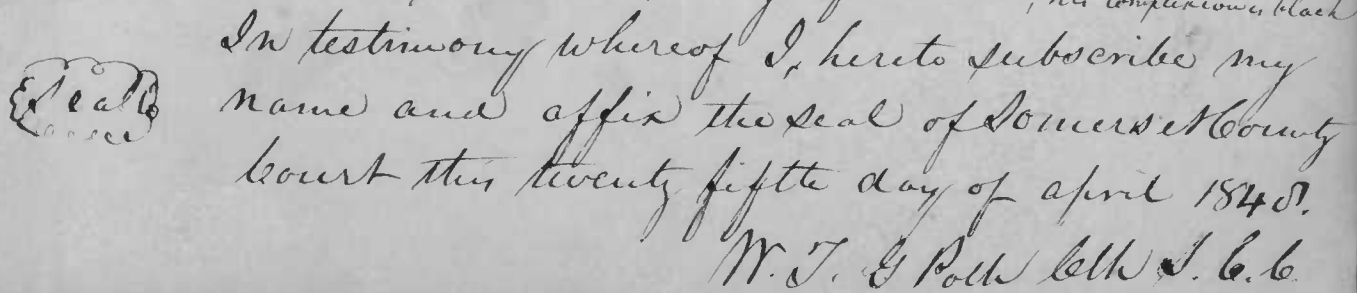 his complexion is black
In testimony whereof I, hereto subscribe my
Seal name and affix the seal of Somerset County
Court this twenty fifth day of april 1848.
W. T. G Polk Clk S. C. C